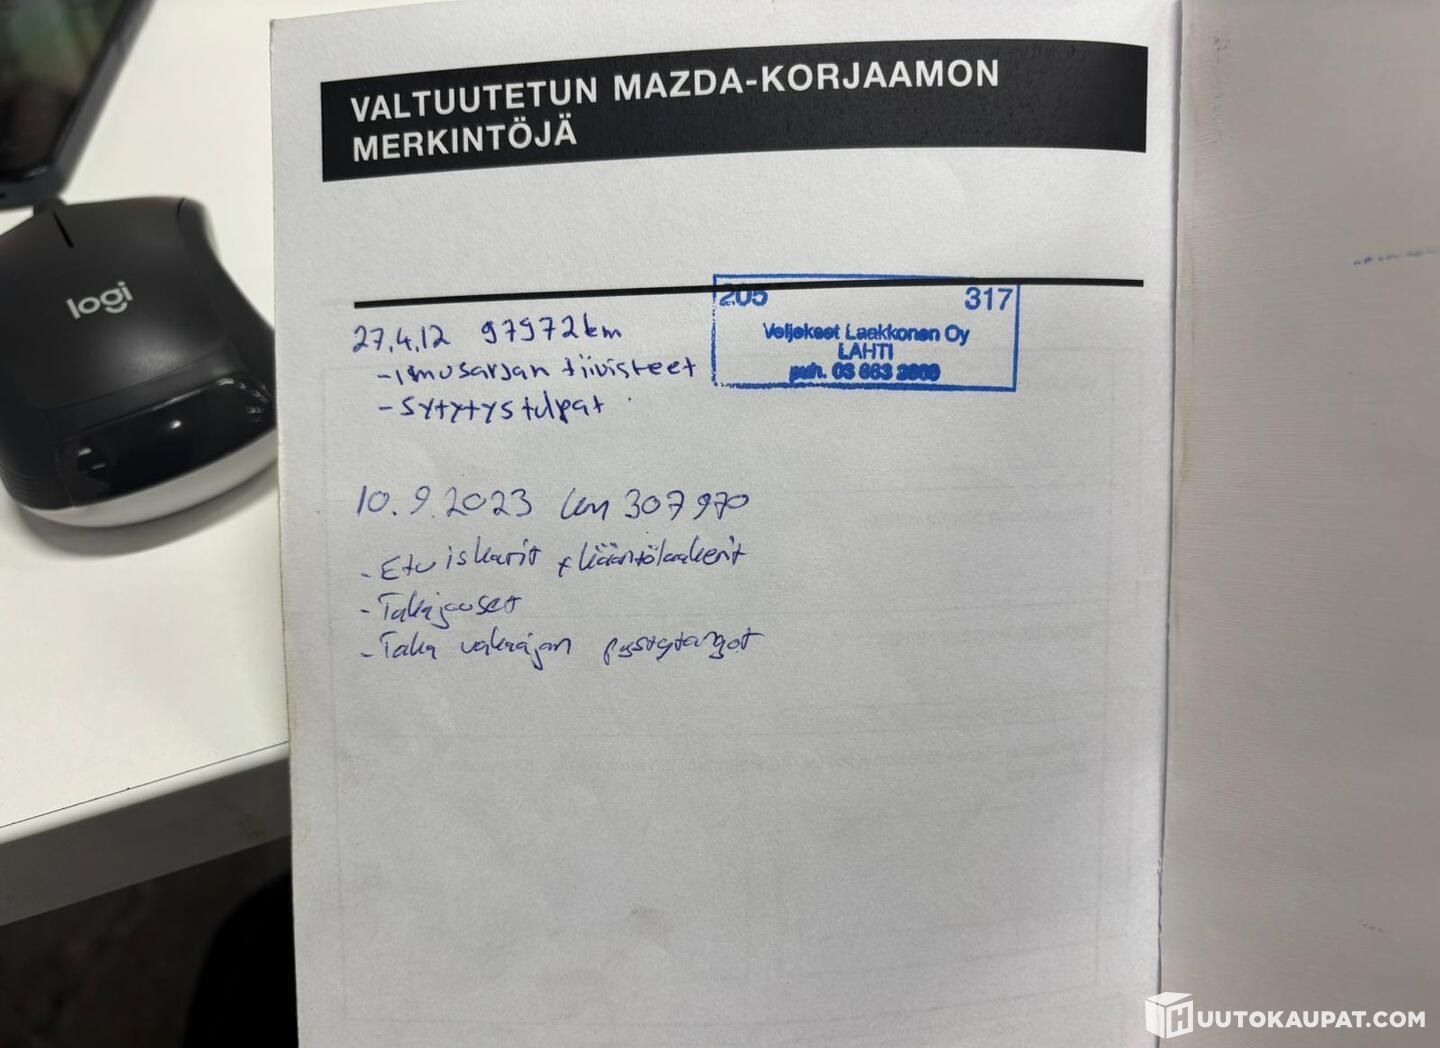 VALTUUTETUN MAZDA-KORJAAMON
MERKINTÖJÄ
205 317
Veljekset Laakkonen Oy
LAHTI
puh. 03 883 2000
27.4.12 97972km
-imusarjan tiivisteet
-sytytystulpat
10.9.2023 km 307970
-Etu iskarit + kääntölaakerit
-Takajouset
-Taka vakaajan pystytangot
logi
HUUTOKAUPAT.COM